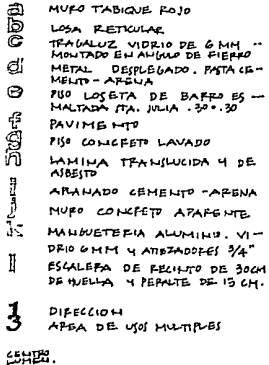 a MURO TABIQUE ROJO
b LOSA RETICULAR
c TRAGALUZ VIDRIO DE 6 MM --
MONTADO EN ANGULO DE FIERRO
d METAL DESPLEGADO. PASTA CE-
MENTO-ARENA
e PISO LOSETA DE BARRO ES--
MALTADA STA. JULIA .30×.30
f PAVIMENTO
g PISO CONCRETO LAVADO
h LAMINA TRANSLUCIDA Y DE
ASBESTO
i APLANADO CEMENTO-ARENA
j MURO CONCRETO APARENTE
k MANGUETERIA ALUMINIO. VI-
DRIO 6MM Y ATIEZADORES 3/4"
l ESCALERA DE RECINTO DE 30CM
DE HUELLA Y PERALTE DE 15 CM.
1 DIRECCION
3 AREA DE USOS MULTIPLES